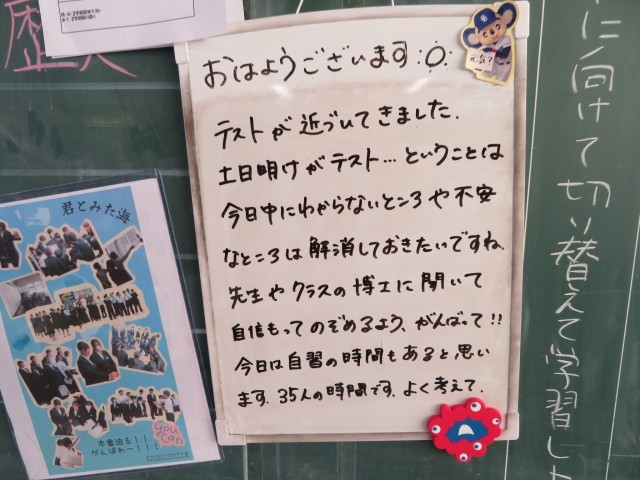 おはようございます
テストが近づいてきました.
土日明けがテスト…ということは
今日中にわからないところや不安
なところは解消しておきたいですね.
先生やクラスの博士に聞いて
自信もってのぞめるよう、がんばって!!
今日は自習の時間もあると思い
ます. 35人の時間です. よく考えて.
君とみた海
本番迫る!!!
がんばれー!!!
you
can
に向けて切り替えて学習し